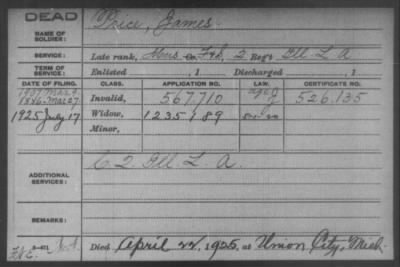 DEAD
NAME OF SOLDIER: Price, James.
SERVICE: Late rank, Mus Co. F&S, 2 Reg't Ill. L. A.
TERM OF SERVICE: Enlisted , 1 Discharged , 1
DATE OF FILING. CLASS. APPLICATION NO. LAW. CERTIFICATE NO.
1907 Mar 9
1886 Mar 27 Invalid, 567,710 526,135
1925 July 17 Widow, 1235189
Minor,
ADDITIONAL SERVICES: C 2. Ill. L. A.
REMARKS:
3-401
Died April 22, 1925, at Union City, Mich.